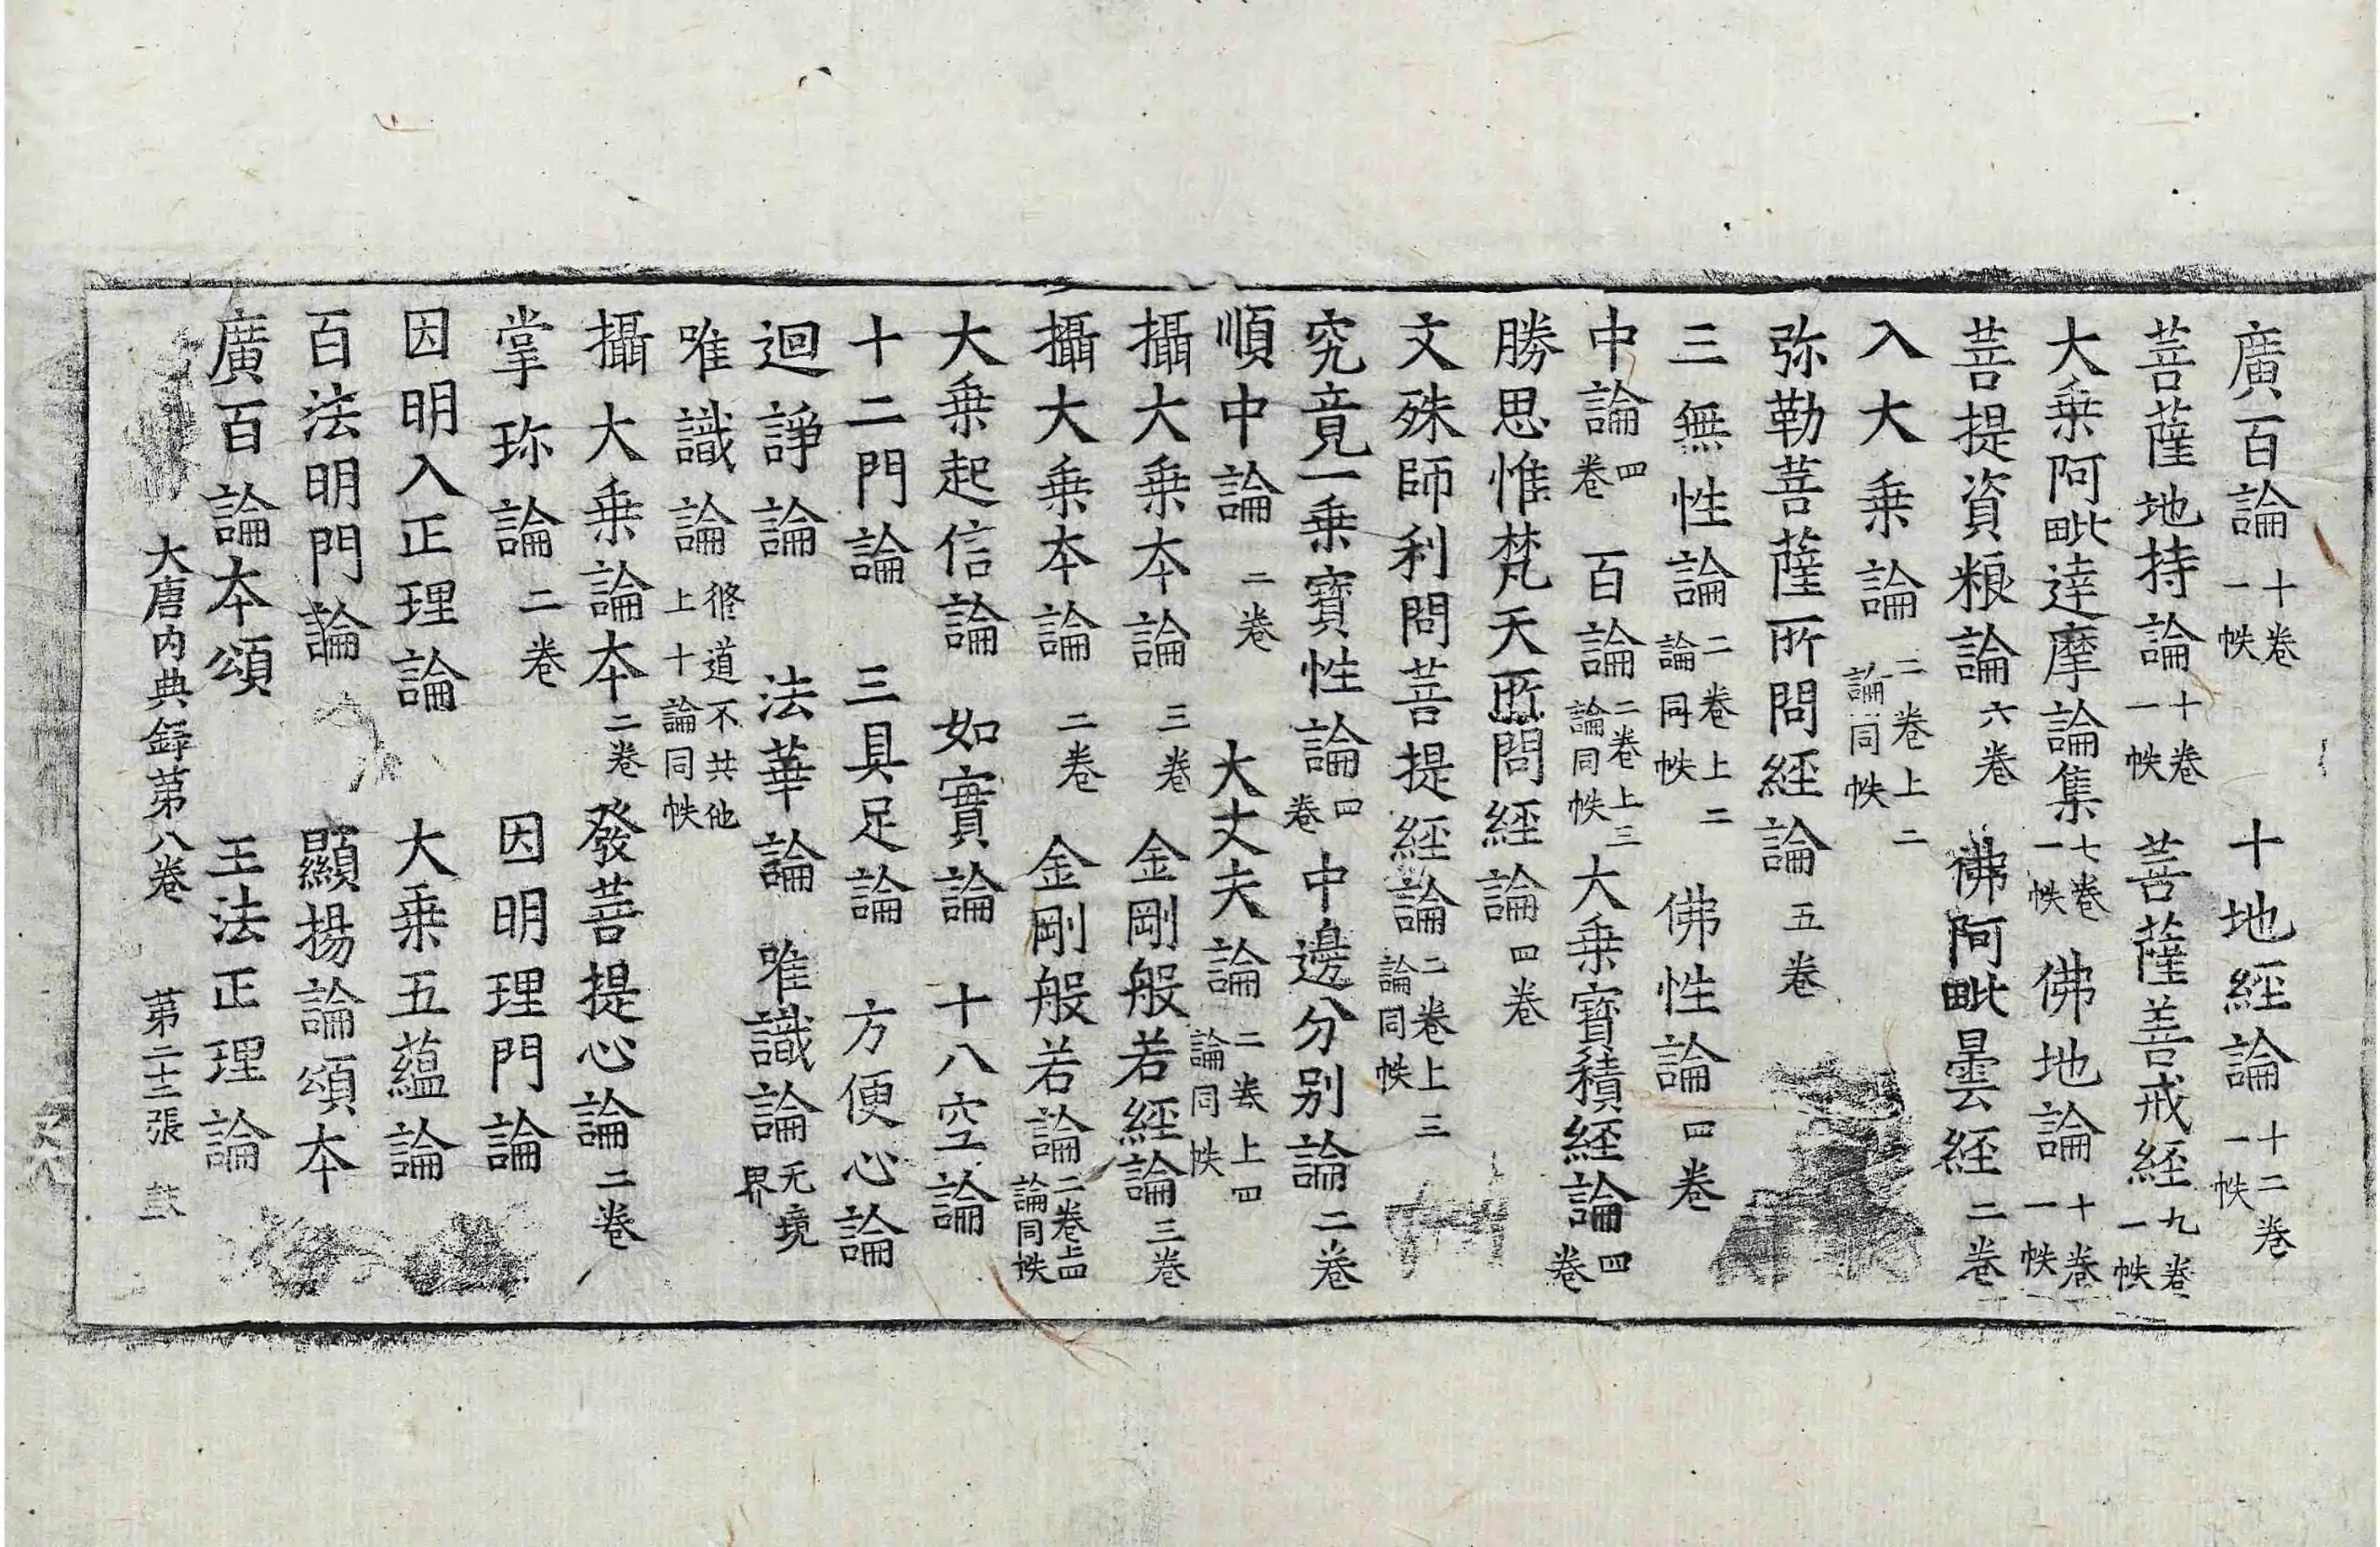 廣百論十卷一帙　十地經論十二卷一帙
菩薩地持論十卷一帙　菩薩善戒経九卷一帙
大乗阿毗達摩論集七卷一帙　佛地論十卷一帙
菩提資粮論六卷　佛阿毗曇経二卷
入大乗論二卷上二論同帙
弥勒菩薩所問経論五卷
三無性論二卷上二論同帙　佛性論四卷
中論四卷　百論二卷上三論同帙　大乗寳積経論四卷
勝思惟梵天所問経論四卷
文殊師利問菩提経論二卷上三論同帙
究竟一乗寳性論四卷　中邊分別論二卷
順中論二卷　大丈夫論二卷上四論同帙
攝大乗本論三卷　金剛般若経論三卷
攝大乗本論二卷　金剛般若論二卷上四論同帙
大乗起信論　如實論　十八空論
十二門論　三具足論　方便心論
迴諍論　法華論　唯識論无境界
唯識論修道不共他上十論同帙
攝大乗論本二卷　發菩提心論二卷
掌珎論二卷　因明理門論
因明入正理論　大乗五蘊論
百法明門論　顯揚論頌本
廣百論本頌　王法正理論
大唐内典録第八卷　第二十三張